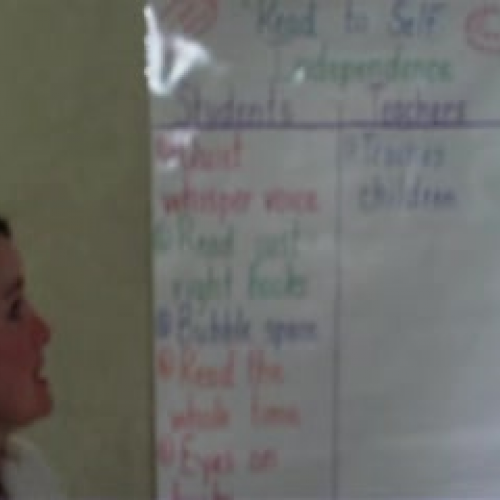 Read to Self
Independence
Students Teachers
Quiet
whisper voice
Read just
right books
Bubble space
Read the
whole time
Eyes on
children